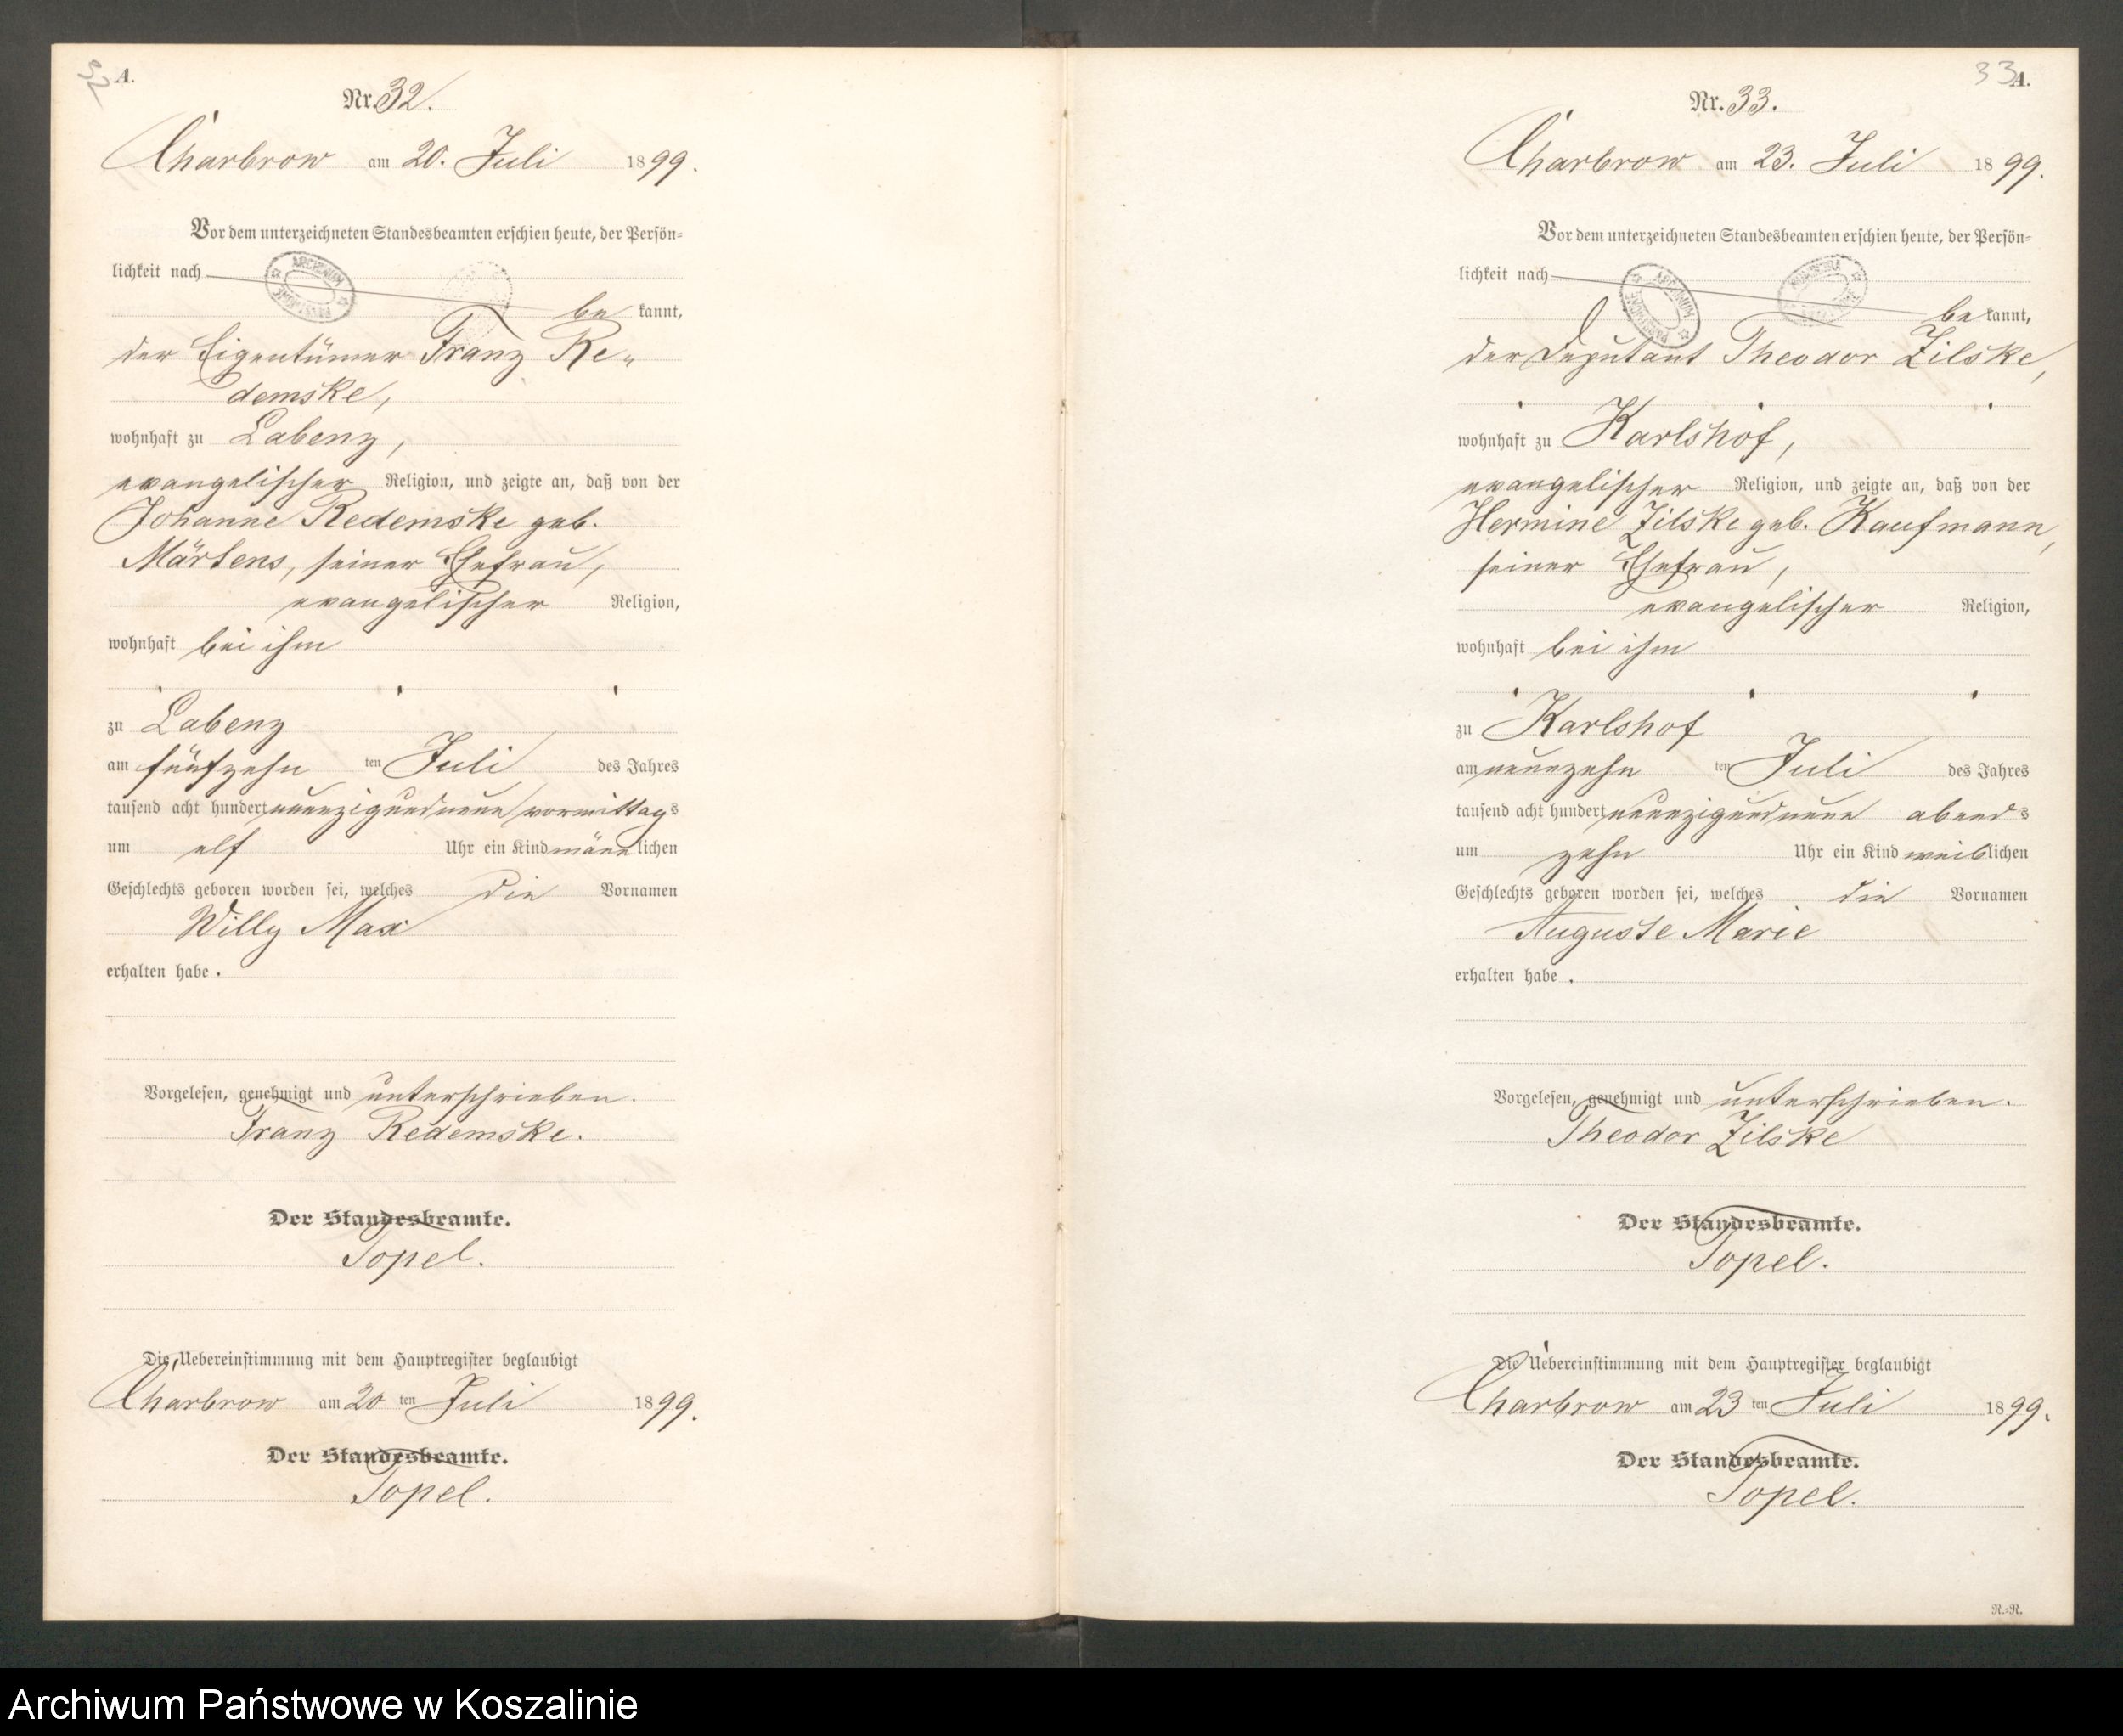 32 A.
Nr. 32.
Charbrow am 20. Juli 1899.
Vor dem unterzeichneten Standesbeamten erschien heute, der Persön=
lichkeit nach
ARCHIWUM PAŃSTWOWE
be kannt,
der Eigentümer Franz Re„
demske,
wohnhaft zu Labenz,
evangelischer Religion, und zeigte an, daß von der
Johanne Redemske geb.
Märtens, seiner Ehefrau,
evangelischer Religion,
wohnhaft bei ihm
zu Labenz
am fünfzehn ten Juli des Jahres
tausend acht hundert neunzigundneun vormittags
um elf Uhr ein Kind männlichen
Geschlechts geboren worden sei, welches die Vornamen
Willy Max
erhalten habe.
Vorgelesen, genehmigt und unterschrieben.
Franz Redemske.
Der Standesbeamte.
Topel.
Die Uebereinstimmung mit dem Hauptregister beglaubigt
Charbrow am 20 ten Juli 1899.
Der Standesbeamte.
Topel.
33 A.
Nr. 33.
Charbrow am 23. Juli 1899.
Vor dem unterzeichneten Standesbeamten erschien heute, der Persön=
lichkeit nach
ARCHIWUM PAŃSTWOWE
be kannt,
der Deputant Theodor Zilske,
wohnhaft zu Karlshof,
evangelischer Religion, und zeigte an, daß von der
Hermine Zilske geb. Kaufmann,
seiner Ehefrau,
evangelischer Religion,
wohnhaft bei ihm
zu Karlshof
am neunzehn ten Juli des Jahres
tausend acht hundert neunzigundneun abends
um zehn Uhr ein Kind weiblichen
Geschlechts geboren worden sei, welches die Vornamen
Auguste Marie
erhalten habe.
Vorgelesen, genehmigt und unterschrieben.
Theodor Zilske
Der Standesbeamte.
Topel.
Die Uebereinstimmung mit dem Hauptregister beglaubigt
Charbrow am 23 ten Juli 1899.
Der Standesbeamte.
Topel.
R.=R.
Archiwum Państwowe w Koszalinie